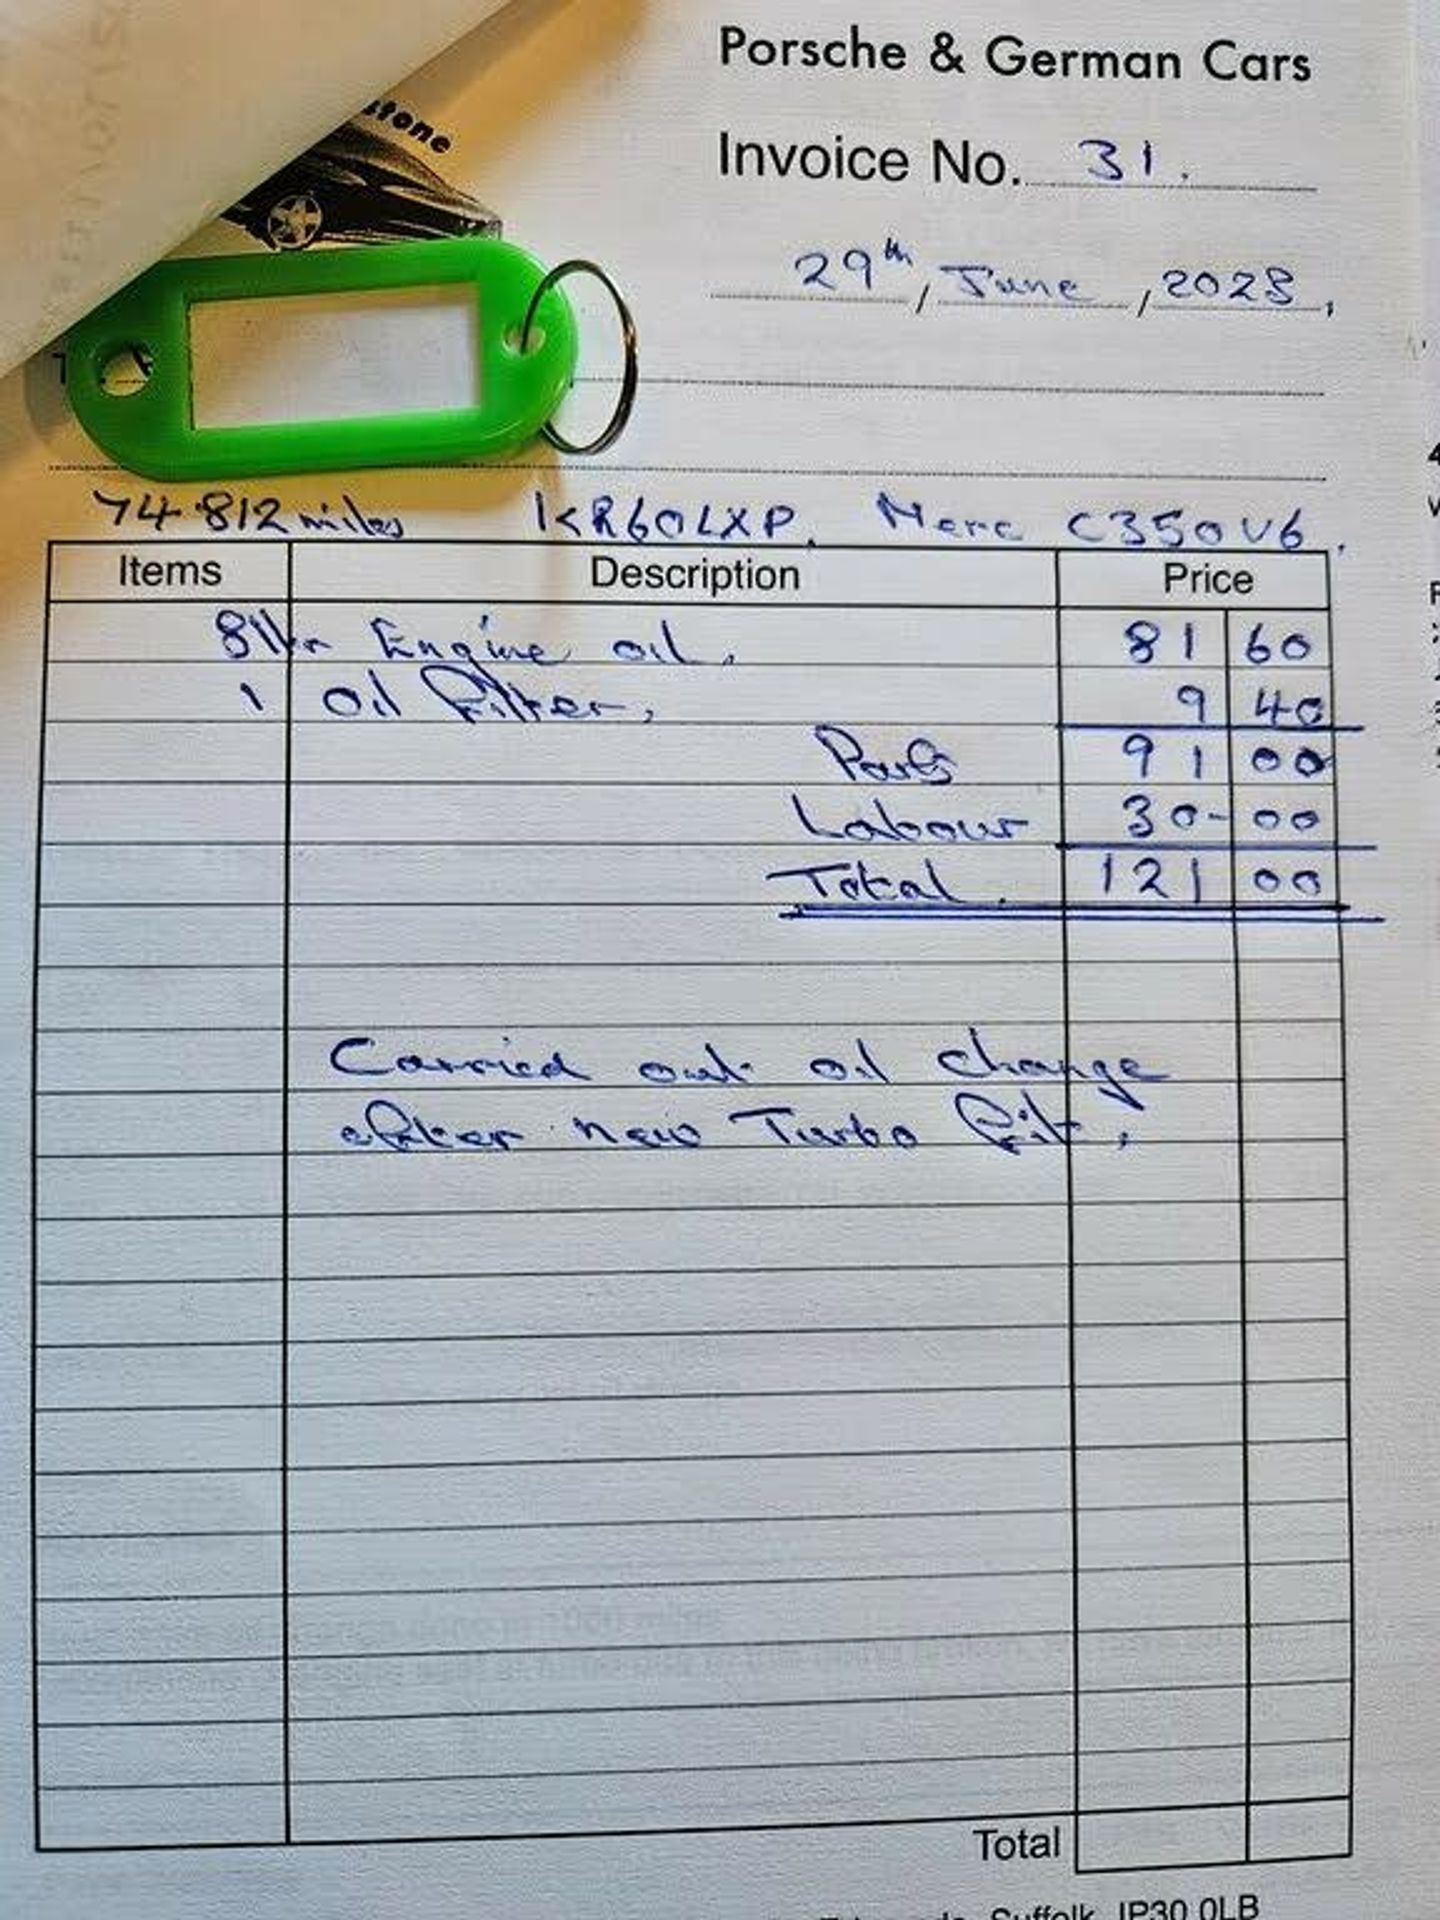 Porsche & German Cars
stone
Invoice No. 31.
29th, June, 2023.
74812 miles KR60LXP. Merc C350V6.
Items Description Price
8ltr Engine oil. 81 60
1 Oil Filter. 9 40
Parts 91 00
Labour 30-00
Total 121 00
Carried out oil change
after new Turbo fit.
Total
Suffolk IP30 0LB